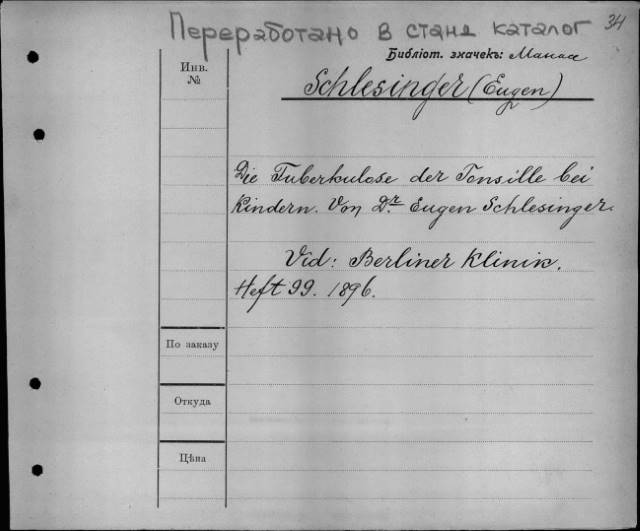 Переработано в станд каталог 34
Библіот. значекъ:
Инв.
№
Schlesinger (Eugen)
Die Tuberkulose der Tonsille bei
Kindern. Von Dr. Eugen Schlesinger.
Vid: Berliner Klinik.
Heft 99. 1896.
По заказу
Откуда
Цѣна